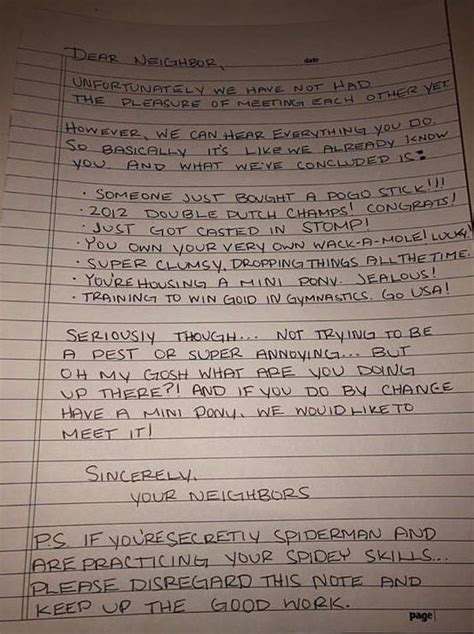 date
DEAR NEIGHBOR,
UNFORTUNATELY WE HAVE NOT HAD
THE PLEASURE OF MEETING EACH OTHER YET.
HOWEVER, WE CAN HEAR EVERYTHING YOU DO.
SO BASICALLY IT'S LIKE WE ALREADY KNOW
YOU. AND WHAT WE'VE CONCLUDED IS:
· SOMEONE JUST BOUGHT A POGO STICK!!!
· 2012 DOUBLE DUTCH CHAMPS! CONGRATS!
· JUST GOT CASTED IN STOMP!
· YOU OWN YOUR VERY OWN WACK-A-MOLE! LUCKY!
· SUPER CLUMSY, DROPPING THINGS ALL THE TIME.
· YOU'RE HOUSING A MINI PONY. JEALOUS!
· TRAINING TO WIN GOLD IN GYMNASTICS. GO USA!
SERIOUSLY THOUGH... NOT TRYING TO BE
A PEST OR SUPER ANNOYING... BUT
OH MY GOSH WHAT ARE YOU DOING
UP THERE?! AND IF YOU DO BY CHANGE
HAVE A MINI PONY, WE WOULD LIKE TO
MEET IT!
SINCERELY,
YOUR NEIGHBORS
P.S IF YOU'RE SECRETLY SPIDERMAN AND
ARE PRACTICING YOUR SPIDEY SKILLS...
PLEASE DISREGARD THIS NOTE AND
KEEP UP THE GOOD WORK.
page